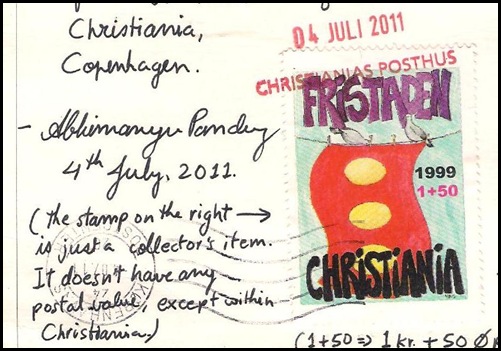 Christiania,
Copenhagen.
- Abhimanyu Pandey
4th July, 2011.
(the stamp on the right →
is just a collector's item.
It doesn't have any
postal value, except within
Christiania.)
04 JULI 2011
CHRISTIANIAS POSTHUS
FRISTADEN
1999
1+50
CHRISTIANIA
(1+50 => 1 kr. + 50 Ø